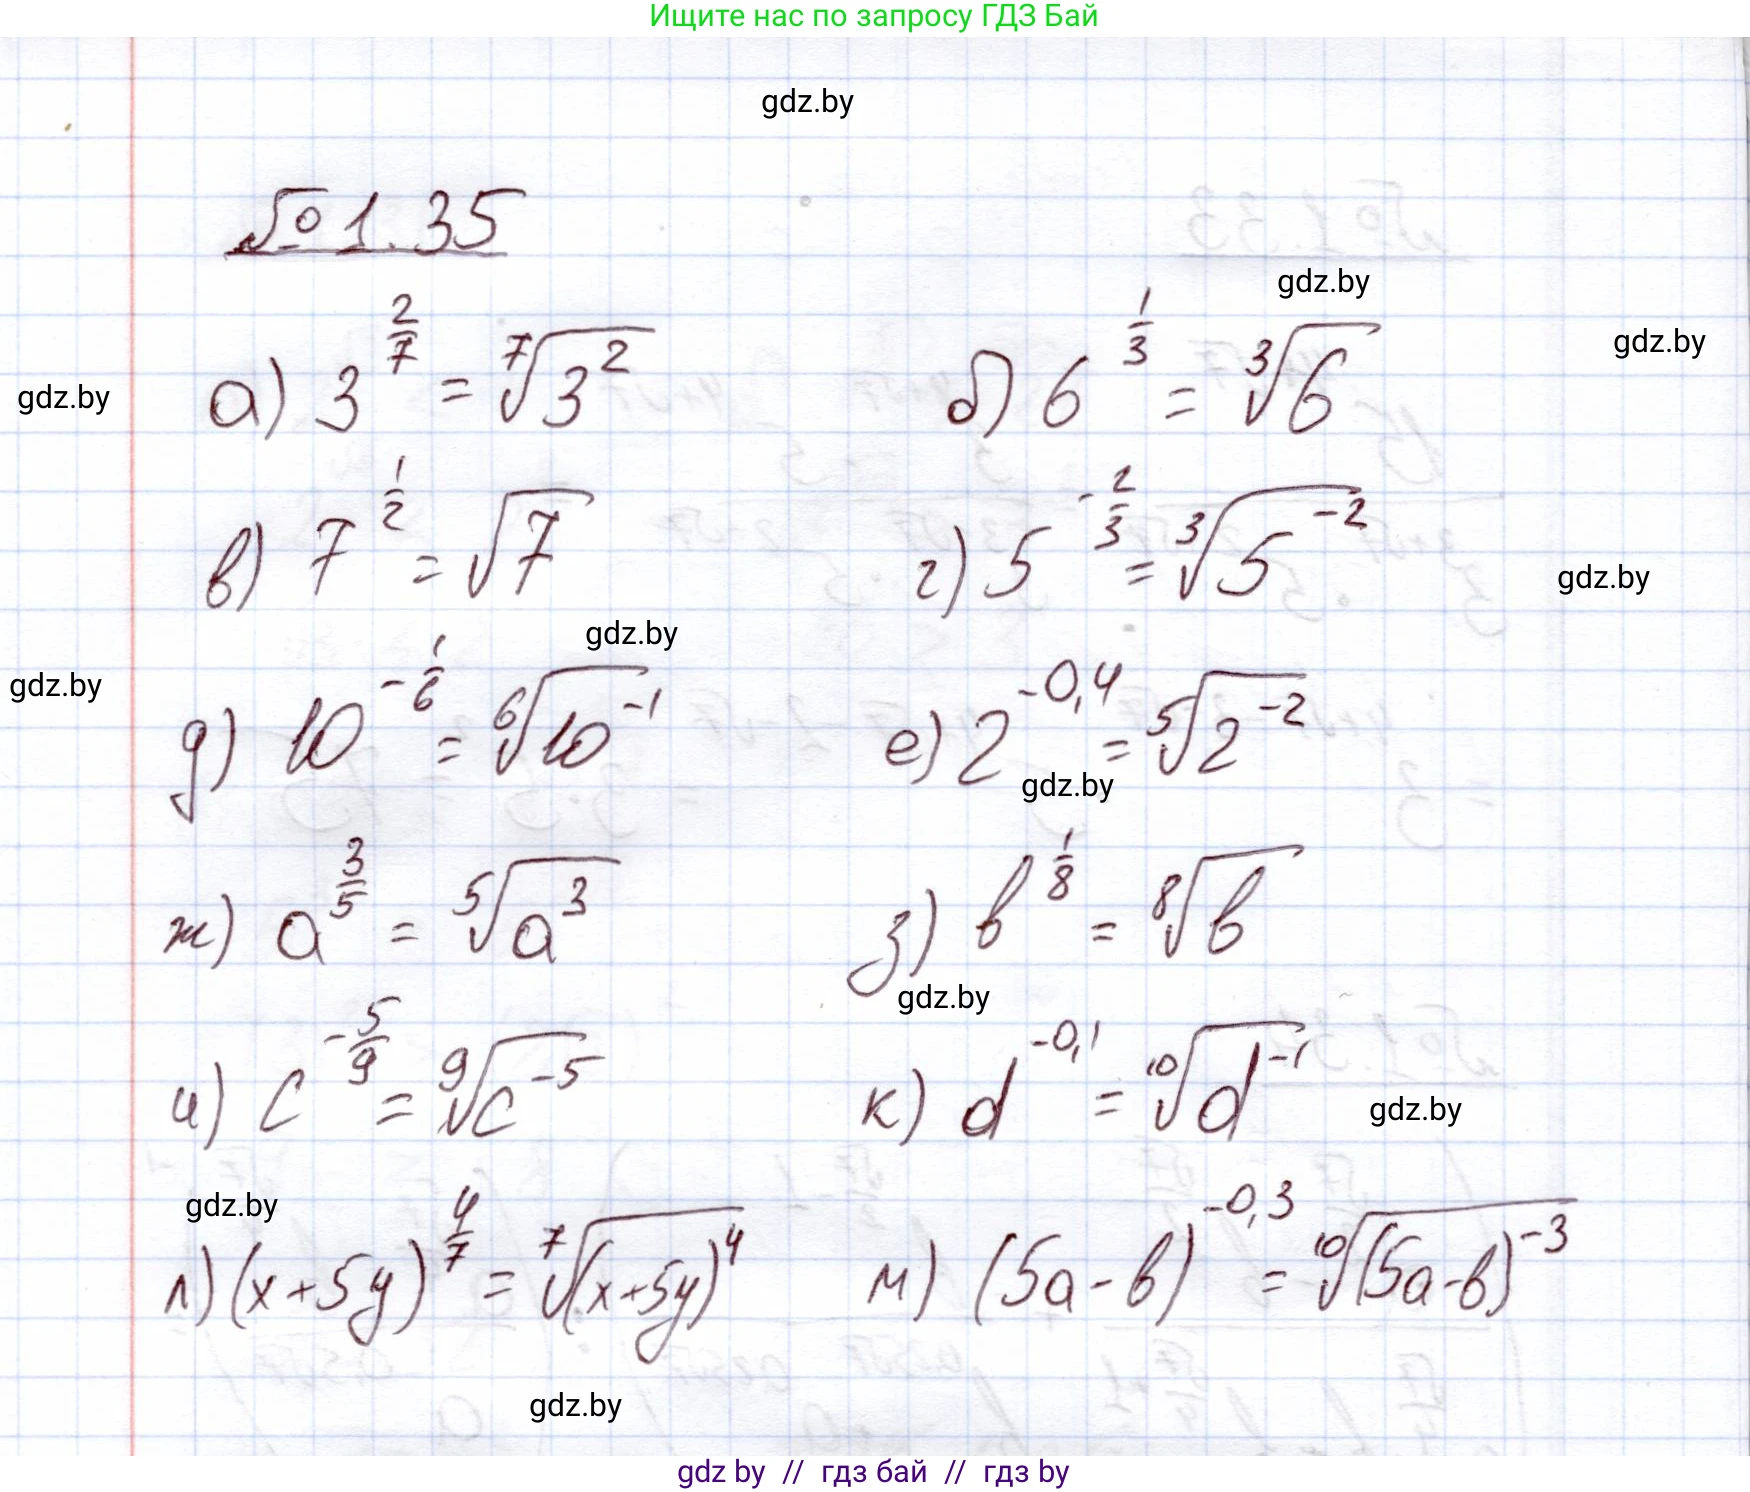 Ищите нас по запросу ГДЗ Бай
gdz.by
№ 1.35
gdz.by
а) 3^{2/7} = ⁷√(3²)   б) 6^{1/3} = ³√6
gdz.by
gdz.by
в) 7^{1/2} = √7   г) 5^{-2/3} = ³√(5^{-2})
gdz.by
gdz.by
gdz.by
д) 10^{-1/6} = ⁶√(10^{-1})   е) 2^{-0,4} = ⁵√(2^{-2})
gdz.by
ж) a^{3/5} = ⁵√(a³)   з) b^{1/8} = ⁸√b
gdz.by
и) c^{-5/9} = ⁹√(c^{-5})   к) d^{-0,1} = ¹⁰√(d^{-1})
gdz.by
gdz.by
л) (x+5y)^{4/7} = ⁷√((x+5y)⁴)   м) (5a-b)^{-0,3} = ¹⁰√((5a-b)^{-3})
gdz.by
gdz by // гдз бай // гдз by